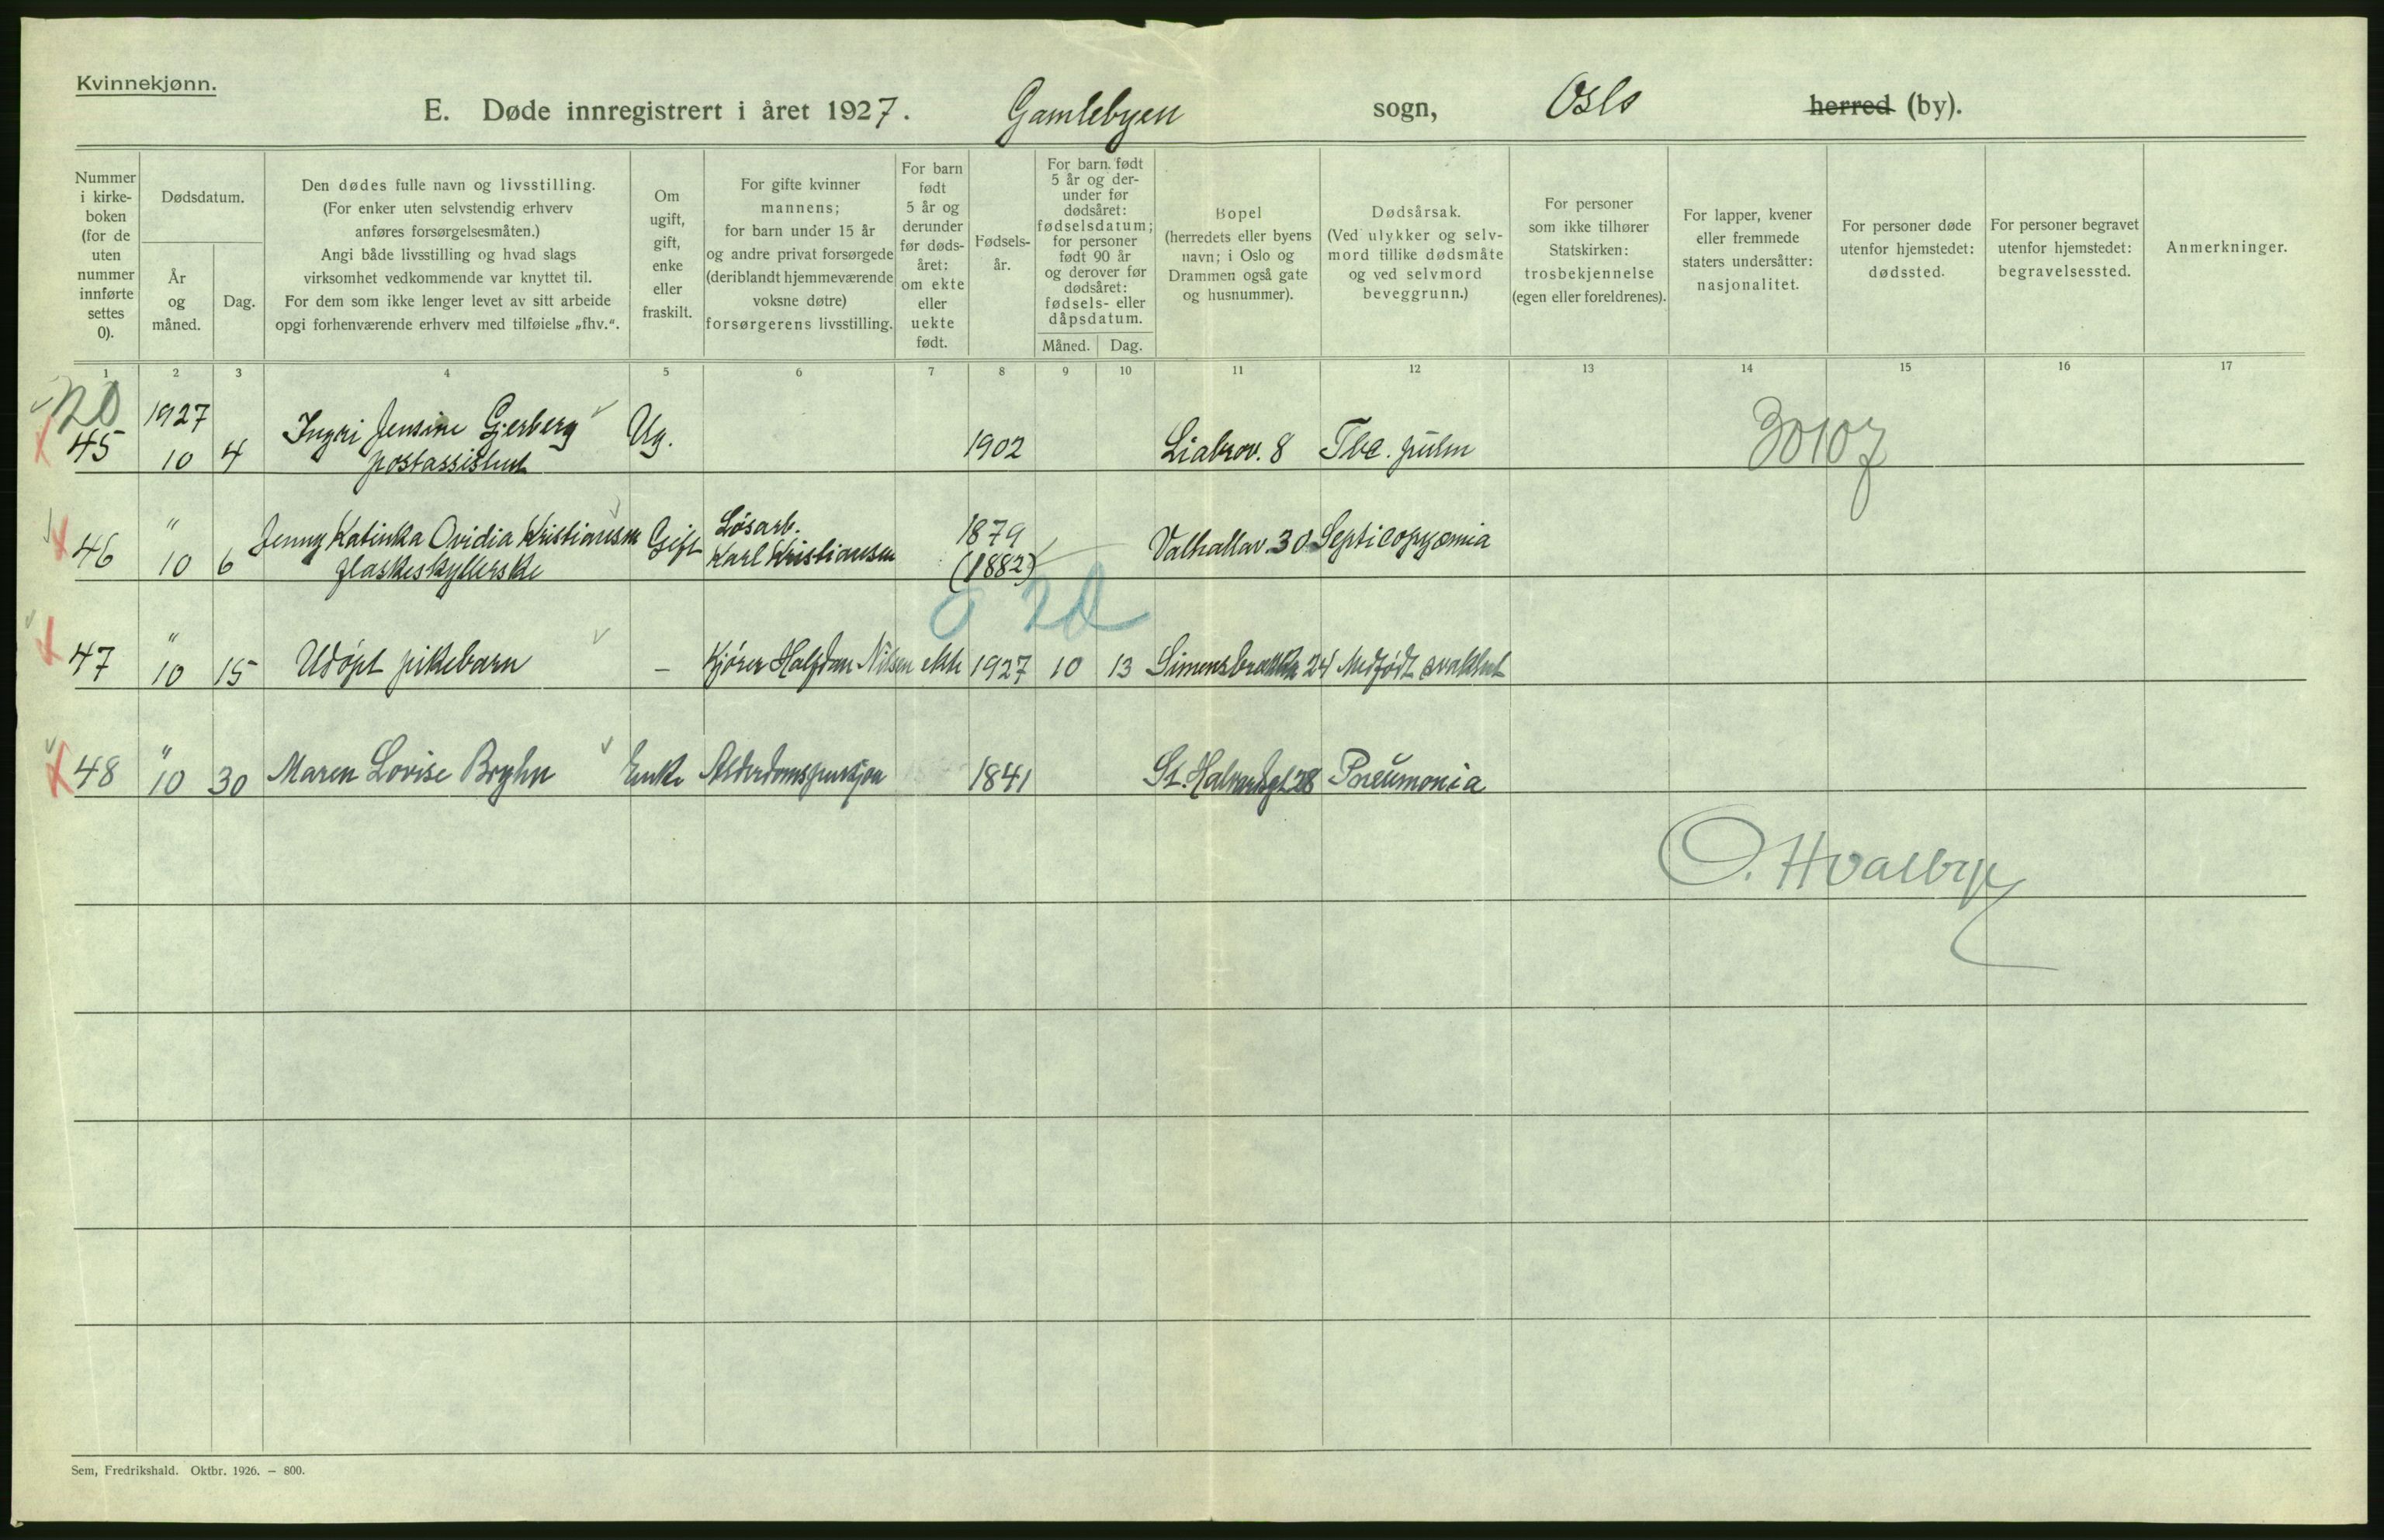 Kvinnekjønn.
E. Døde innregistrert i året 1927. Gamlebyen sogn, Oslo herred (by).
Nummer i kirke-boken (for de uten nummer innførte settes 0).
Dødsdatum.
År og måned.
Dag.
Den dødes fulle navn og livsstilling.
(For enker uten selvstendig erhverv
anføres forsørgelsesmåten.)
Angi både livsstilling og hvad slags
virksomhet vedkommende var knyttet til.
For dem som ikke lenger levet av sitt arbeide
opgi forhenværende erhverv med tilføielse „fhv.“.
Om ugift, gift, enke eller fraskilt.
For gifte kvinner
mannens;
for barn under 15 år
og andre privat forsørgede
(deriblandt hjemmeværende
voksne døtre)
forsørgerens livsstilling.
For barn
født
5 år og
derunder
før døds-
året:
om ekte
eller
uekte
født.
Fødsels-
år.
For barn født
5 år og der-
under før
dødsåret:
fødselsdatum;
for personer
født 90 år
og derover før
dødsåret:
fødsels- eller
dåpsdatum.
Måned. Dag.
Bopel
(herredets eller byens
navn; i Oslo og
Drammen også gate
og husnummer).
Dødsårsak.
(Ved ulykker og selv-
mord tillike dødsmåte
og ved selvmord
beveggrunn.)
For personer
som ikke tilhører
Statskirken:
trosbekjennelse
(egen eller foreldrenes).
For lapper, kvener
eller fremmede
staters undersåtter:
nasjonalitet.
For personer døde
utenfor hjemstedet:
dødssted.
For personer begravet
utenfor hjemstedet:
begravelsessted.
Anmerkninger.
1 2 3 4 5 6 7 8 9 10 11 12 13 14 15 16 17
20 1927
45 10 4 Ingri Jensine Gjerberg Ug. 1902 Liabrov. 8 Tbc. pulm 30107
postassistent
46 " 10 6 Jenny Katinka Ovidia Kristiansen Gift Løsarb. 1879 Valhallav. 30 Septicopyæmia
flaskeskyllerske Karl Kristiansen (1882)
47 " 10 15 Udøpt pikebarn – Kjører Halfdan Nilsen ekte 1927 10 13 Simensbrekka 24 Medfødt svakhet
48 " 10 30 Maren Lovise Bryhn Enke Alderdomspensjon 1841 St. Halvardsgt 28 Pneumonia
O. Hvalbye
Sem, Fredrikshald. Oktbr. 1926. – 800.